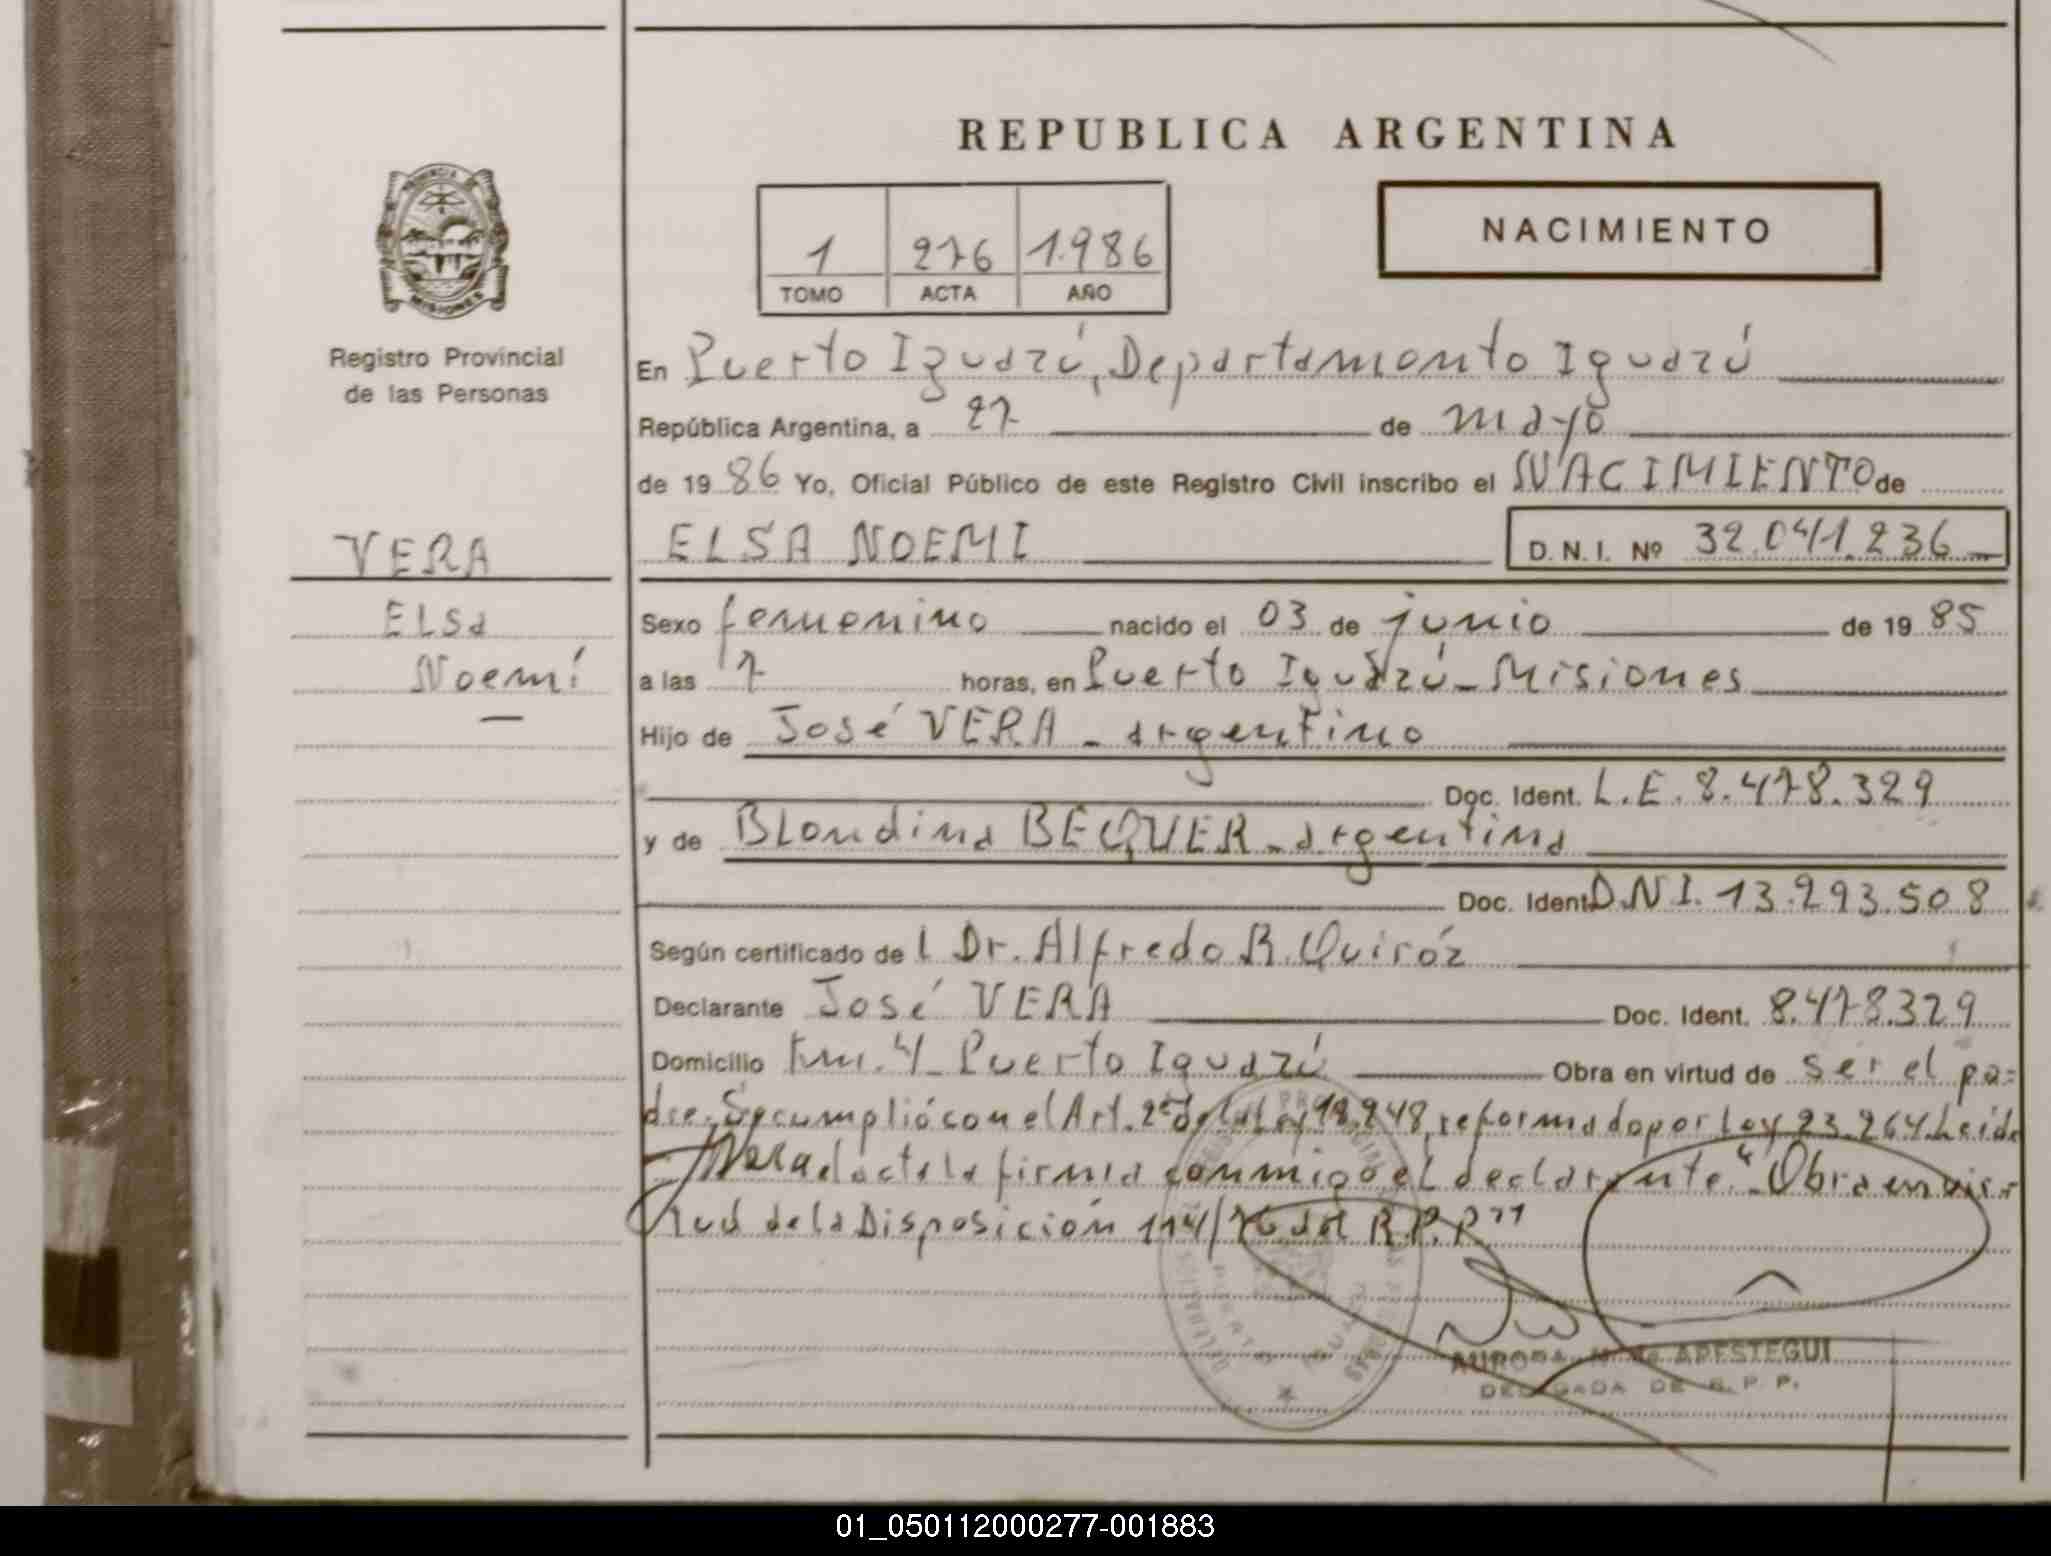 REPUBLICA ARGENTINA
PROVINCIA DE
MISIONES
Registro Provincial
de las Personas
1 276 1.986
TOMO ACTA AÑO
NACIMIENTO
En Puerto Iguazú, Departamento Iguazú
República Argentina, a 27 de mayo
de 19 86 Yo, Oficial Público de este Registro Civil inscribo el NACIMIENTO de
VERA
ELSA NOEMI D. N. I. Nº 32.041.236
Elsa
Noemí
Sexo femenino nacido el 03 de junio de 19 85
a las 7 horas, en Puerto Iguazú - Misiones
Hijo de José VERA - argentino
Doc. Ident. L.E. 8.478.329
y de Blondina BEQUER - argentina
Doc. Ident. D.N.I. 13.293.508
Según certificado de l Dr. Alfredo R. Quiróz
Declarante José VERA Doc. Ident. 8.478.329
Domicilio Km. 4 - Puerto Iguazú Obra en virtud de ser el pa=
dre. Se cumplió con el Art. 2º de la Ley 18.248, reformado por Ley 23.264. Leída
el acta la firma conmigo el declarante. "Obra en vir-
tud de la Disposición 114/76 del R.P.P."
AURORA N. de APESTEGUI
DELEGADA DE R. P. P.
01_050112000277-001883